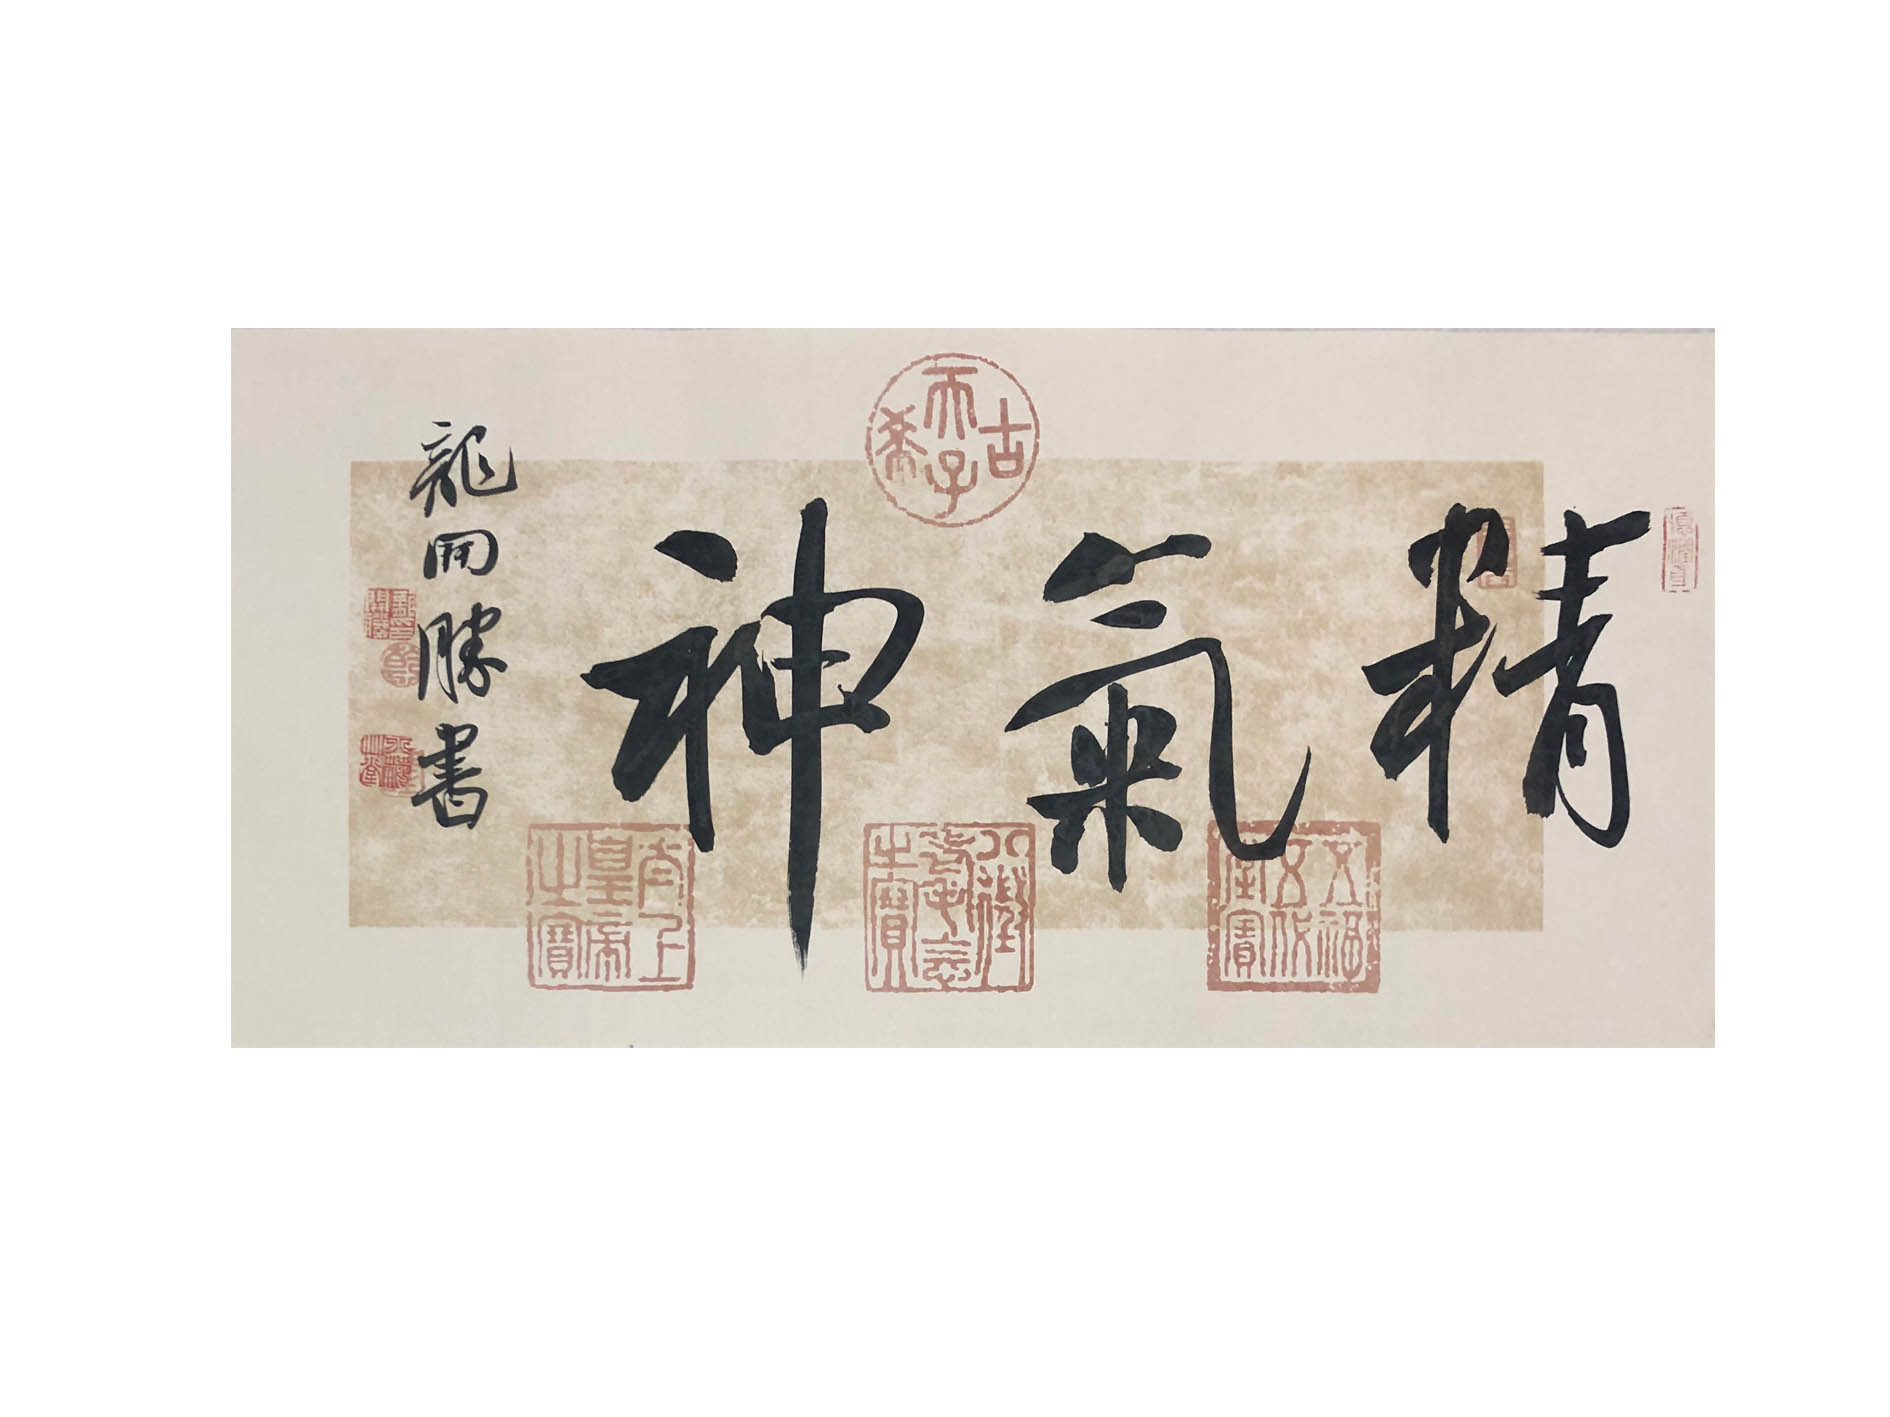 精氣神
龍開勝書
古希天子
五福五代堂寶
八徵耄念之寶
太上皇帝之寶